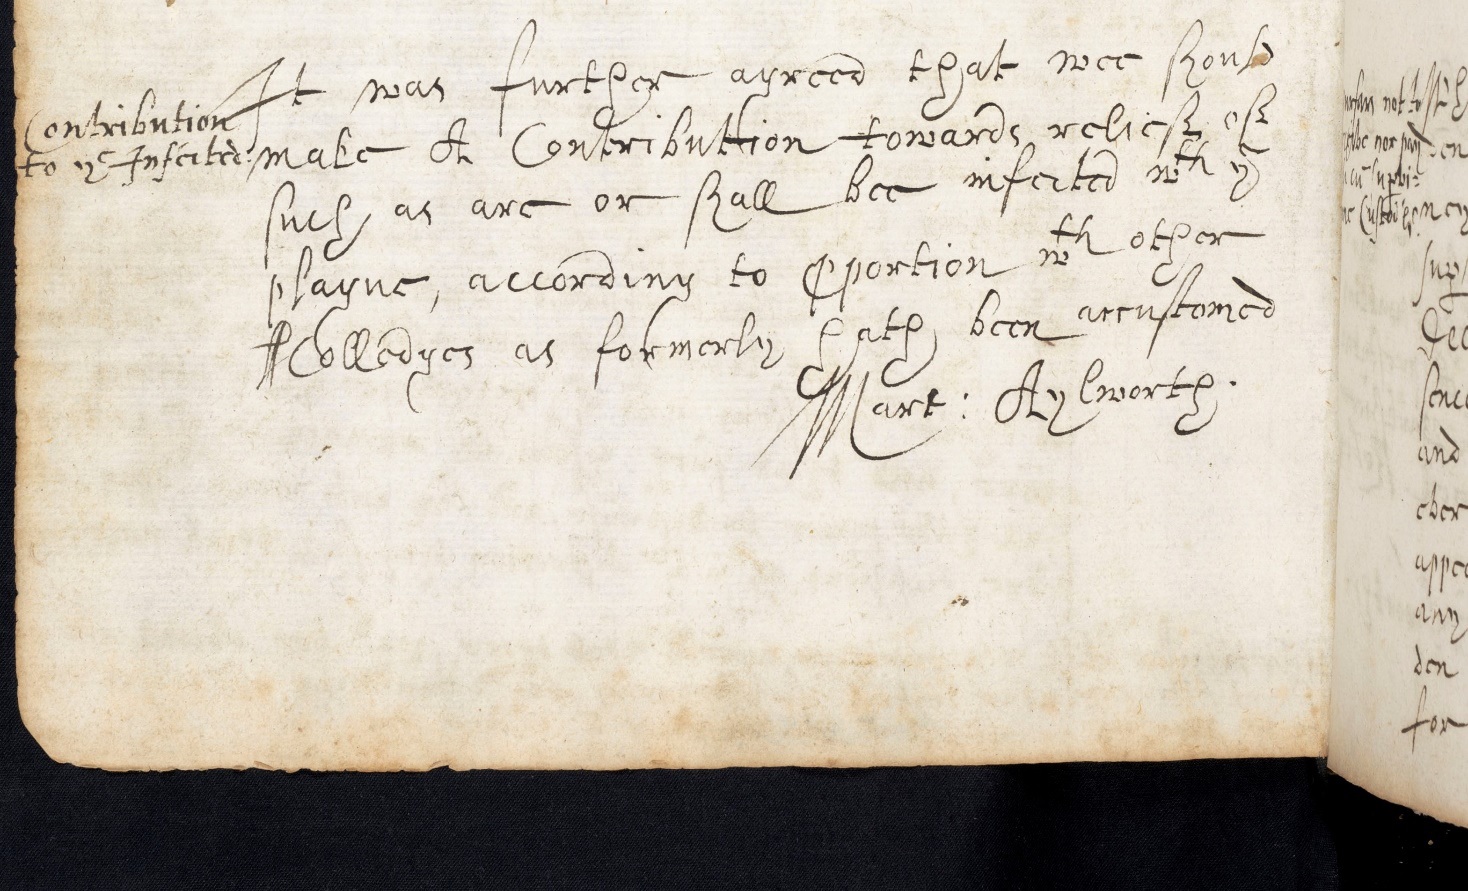 Contribution
to ye Infected:
It was further agreed that wee should
make A Contribution towards reliefe of
such as are or shall bee infected wth ye
plague, according to pportion wth other
Colledges as formerly hath been accustomed
Mart: Aylworth.
not to
nor
sence
and
ever
any
den
for